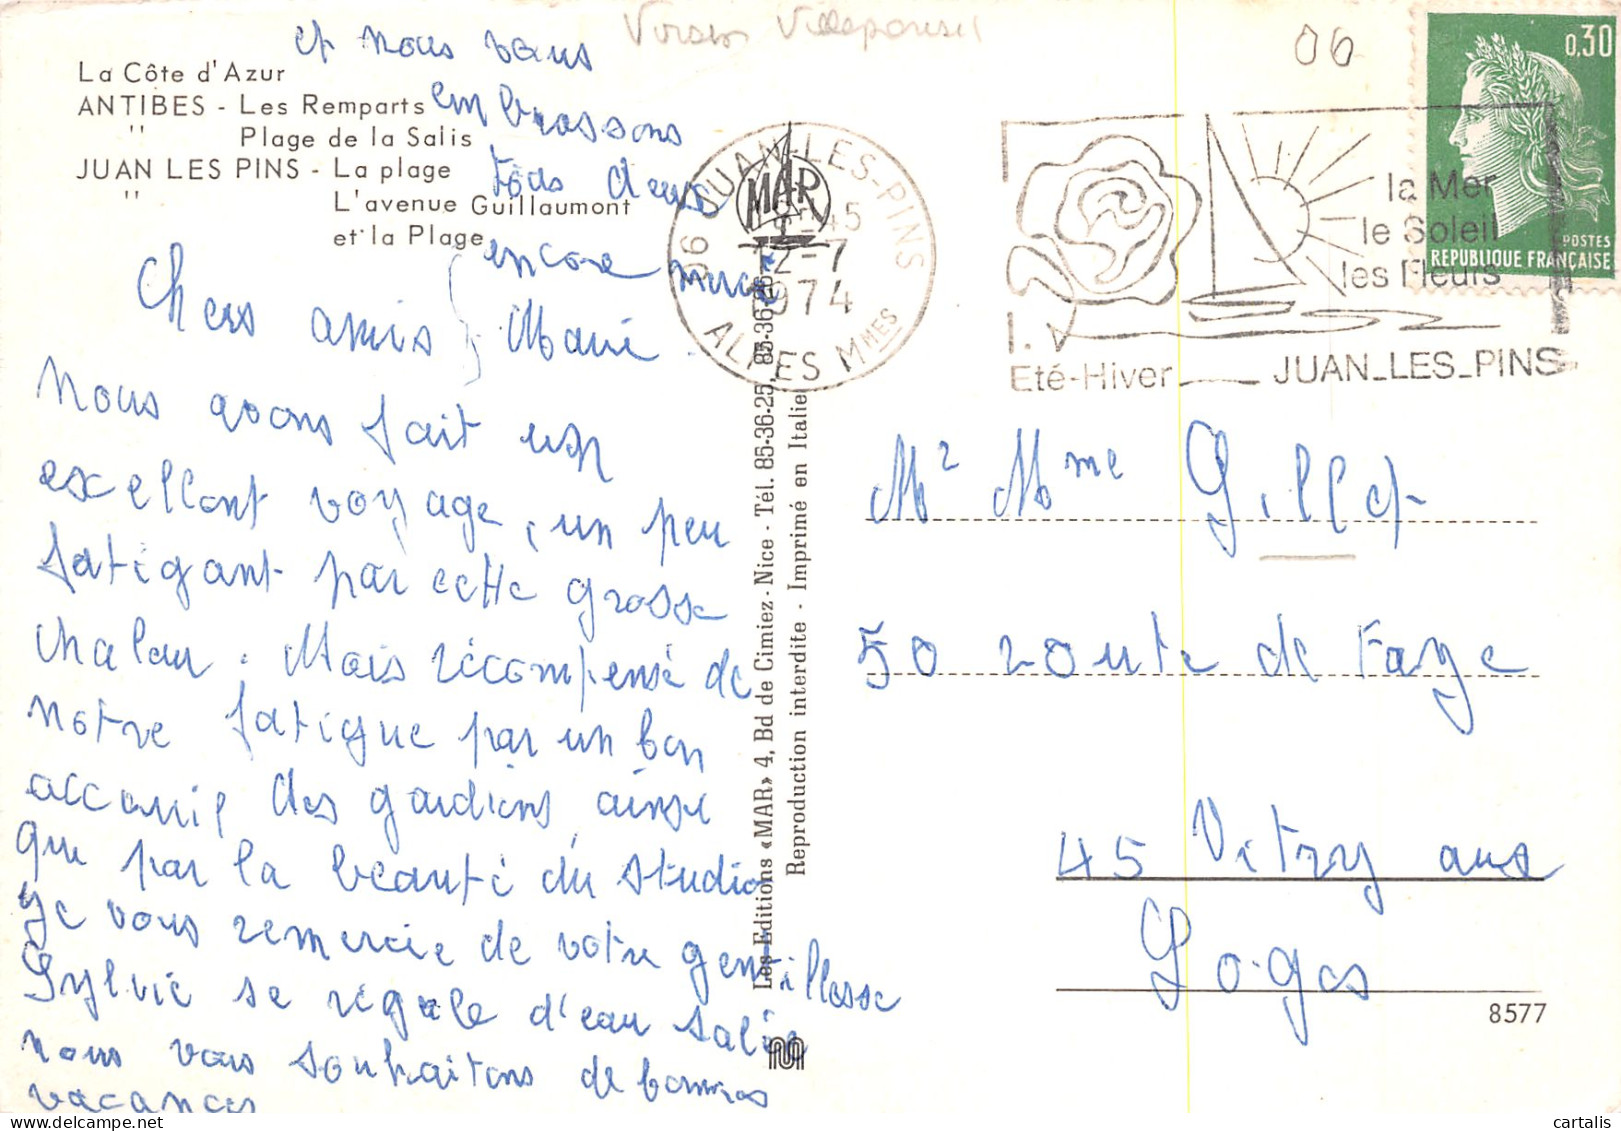 La Côte d'Azur
ANTIBES - Les Remparts
" Plage de la Salis
JUAN LES PINS - La plage
" L'avenue Guillaumont
et la Plage
Chers amis
Nous avons fait un
excellent voyage, un peu
fatigant par cette grosse
chaleur. Mais récompensé de
notre fatigue par un bon
accueil des gardiens ainsi
que par la beauté du studio
Je vous remercie de votre gentillesse
Sylvie se régale d'eau salée
nous vous souhaitons de bonnes
vacances
et nous vous
embrassons
tous deux
encore merci
06
0,30
POSTES
REPUBLIQUE FRANÇAISE
06 JUAN-LES-PINS
-45
12-7
1974
ALPES Mmes
MAR
la Mer
le Soleil
les Fleurs
Eté-Hiver JUAN_LES_PINS
Les Editions «MAR» 4, Bd de Cimiez - Nice - Tél. 85-36-25, 85-36-26
Reproduction interdite - Imprimé en Italie
Mr Mme Gillet
50 route de Faye
45 Vitry aux
Loges
8577
cartalis